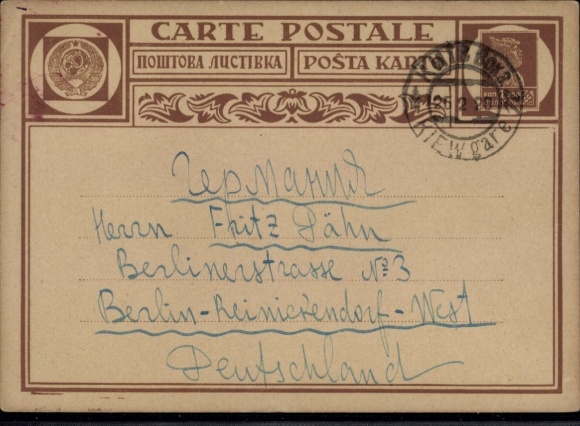 CARTE POSTALE
ПОШТОВА ЛИСТІВКА POŠTA KARTO
KIEW gare
Германия
Herrn Fritz Dähn
Berlinerstrasse № 3
Berlin-Reinickendorf-West
Deutschland